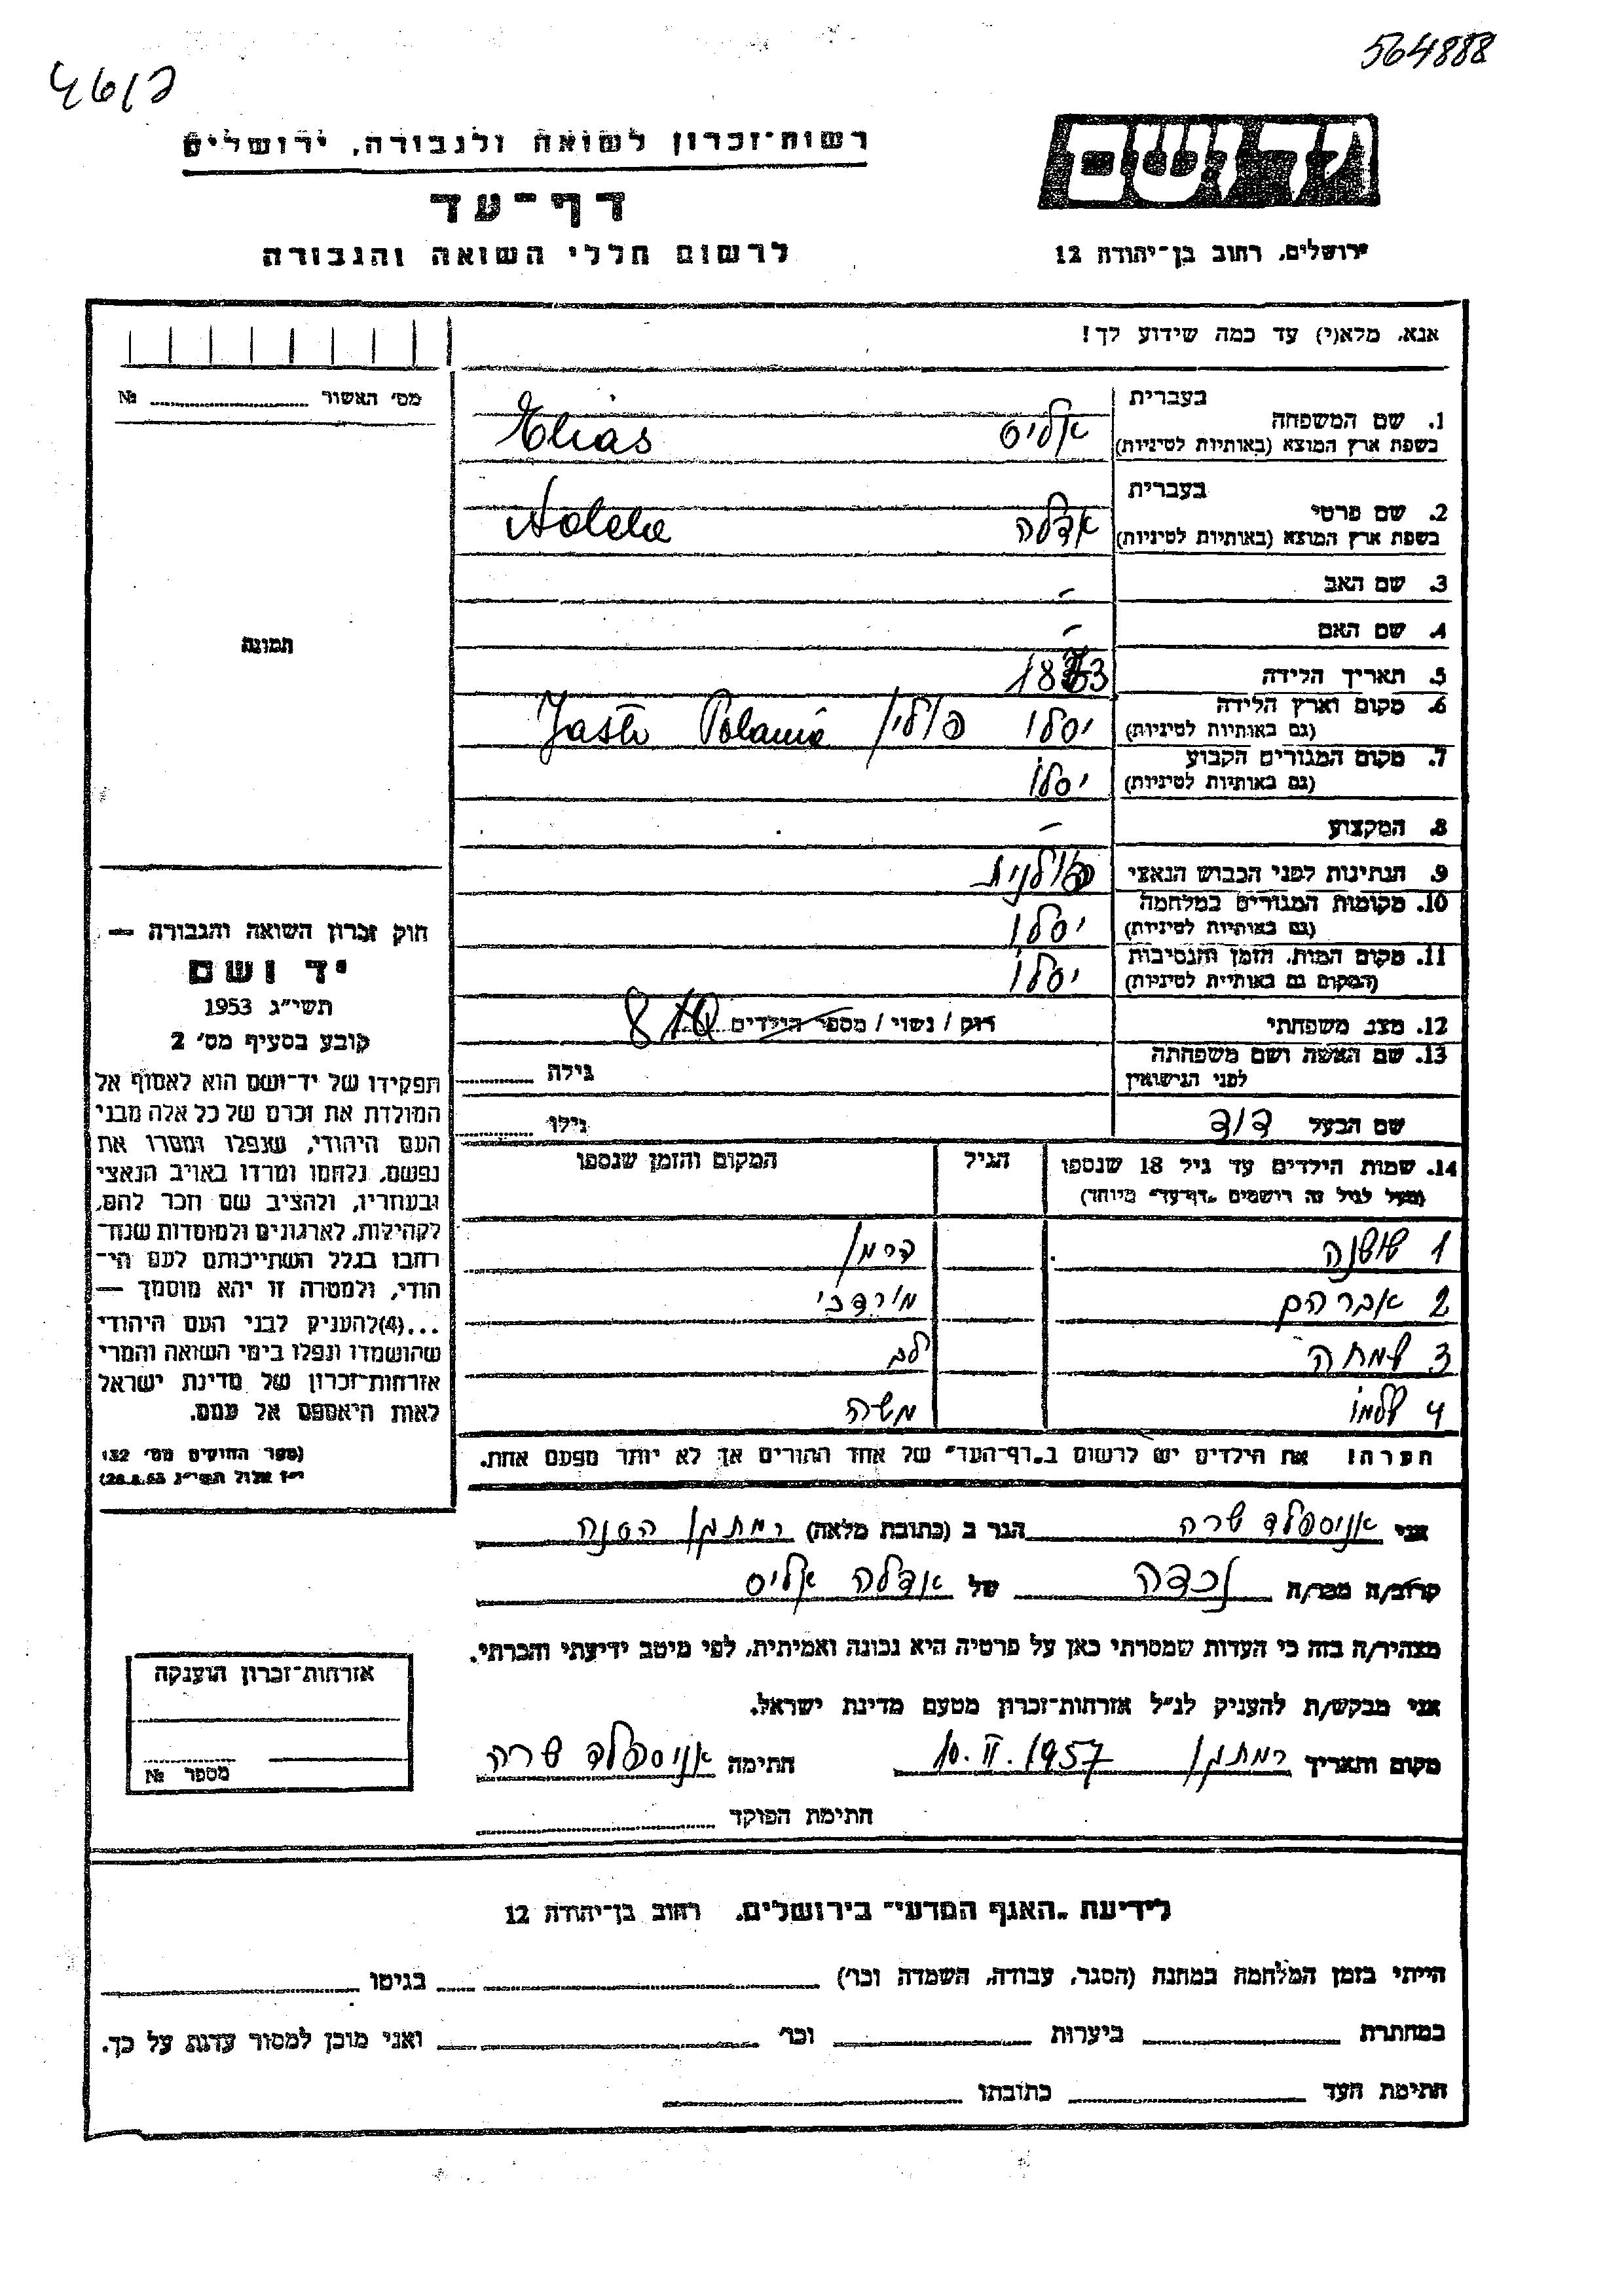 564888
רשות־זכרון לשואה ולגבורה, ירושלים
יד ושם
דף־עד
לרשום חללי השואה והגבורה
ירושלים, רחוב בן־יהודה 12
אנא, מלא(י) עד כמה שידוע לך!
מס׳ האשור № 
בעברית
1. שם המשפחה
בשפת ארץ המוצא (באותיות לטיניות)
אליס Elias
בעברית
2. שם פרטי
בשפת ארץ המוצא (באותיות לטיניות)
אדלה Adela
3. שם האב –
4. שם האם –
תמונה
5. תאריך הלידה
6. מקום וארץ הלידה
(גם באותיות לטיניות)
יסלו פולין Jasło Polania
7. מקום המגורים הקבוע
(גם באותיות לטיניות)
יסלו
8. המקצוע –
9. הנתינות לפני הכבוש הנאצי פולנית
10. מקומות המגורים במלחמה
(גם באותיות לטיניות)
יסלו
11. מקום המות, הזמן והנסיבות
(המקום גם באותיות לטיניות)
יסלו
12. מצב משפחתי רוק / נשוי / מספר הילדים 8
13. שם האשה ושם משפחתה
לפני הנישואין
גילה
שם הבעל דוד גילו
14. שמות הילדים עד גיל 18 שנספו הגיל המקום והזמן שנספו
(מעל לגיל זה רושמים „דף־עד״ מיוחד)
1 שושנה הרמן
2 אברהם מורדכי
3 שמחה לב
4 שלמו משה
הערה! את הילדים יש לרשום ב„דף־העד״ של אחד ההורים אך לא יותר מפעם אחת.
חוק זכרון השואה והגבורה —
יד ושם
תשי״ג 1953
קובע בסעיף מס׳ 2
תפקידו של יד־ושם הוא לאסוף אל
המולדת את זכרם של כל אלה מבני
העם היהודי, שנפלו ומסרו את
נפשם, נלחמו ומרדו באויב הנאצי
ובעוזריו, ולהציב שם וזכר להם,
לקהילות, לארגונים ולמוסדות שנח־
רבו בגלל השתייכותם לעם הי־
הודי, ולמטרה זו יהא מוסמך —
...(4)להעניק לבני העם היהודי
שהושמדו ונפלו בימי השואה והמרי
אזרחות־זכרון של מדינת ישראל
לאות היאספם אל עמם.
(ספר החוקים מס׳ 132
י״ז אלול תשי״ג 28.8.53)
אני אניספלד שרה הגר ב (כתובת מלאה) רמתגן
קרוב/ה מכר/ה נכדה של אדלה אליס
מצהיר/ה בזה כי העדות שמסרתי כאן על פרטיה היא נכונה ואמיתית, לפי מיטב ידיעתי והכרתי.
אני מבקש/ת להעניק לנ״ל אזרחות־זכרון מטעם מדינת ישראל.
מקום ותאריך רמתגן 10.II.1957 חתימה אניספלד שרה
חתימת הפוקד
אזרחות־זכרון הוענקה
מספר №
לידיעת „האגף המדעי״ בירושלים, רחוב בן־יהודה 12
הייתי בזמן המלחמה במחנה (הסגר, עבודה, השמדה וכו׳) בגיטו
במחתרת ביערות וכו׳ ואני מוכן למסור עדות על כך.
חתימת העד כתובתו